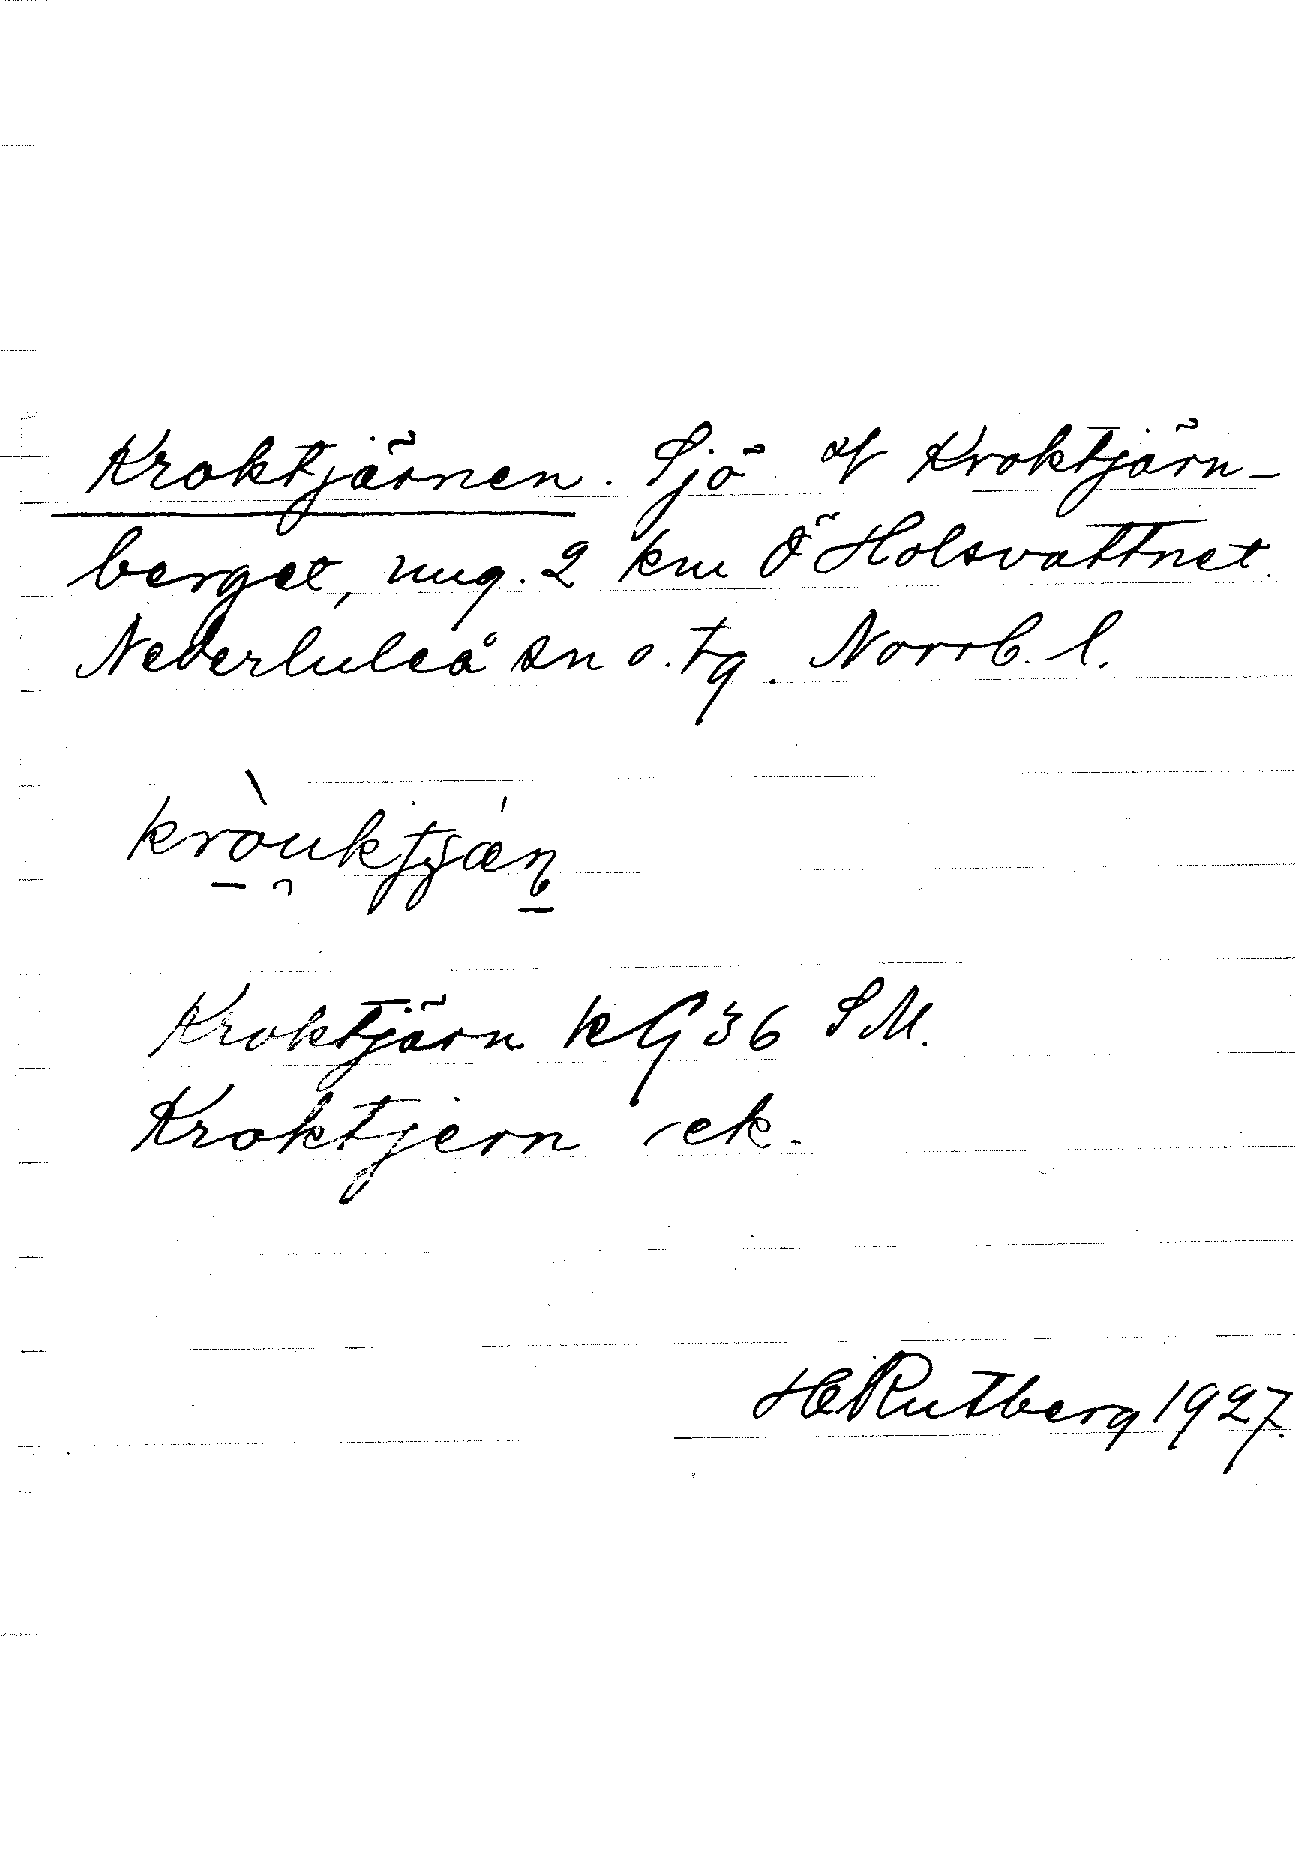 Kroktjärnen. Sjö af Kroktjärn-
berget, ung. 2 km Ö Holsvattnet.
Nederluleå sn o. tg. Norrb. l.
Kroktjärn KG 36 SM.
Kroktjern ek.
HERutberg 1927.